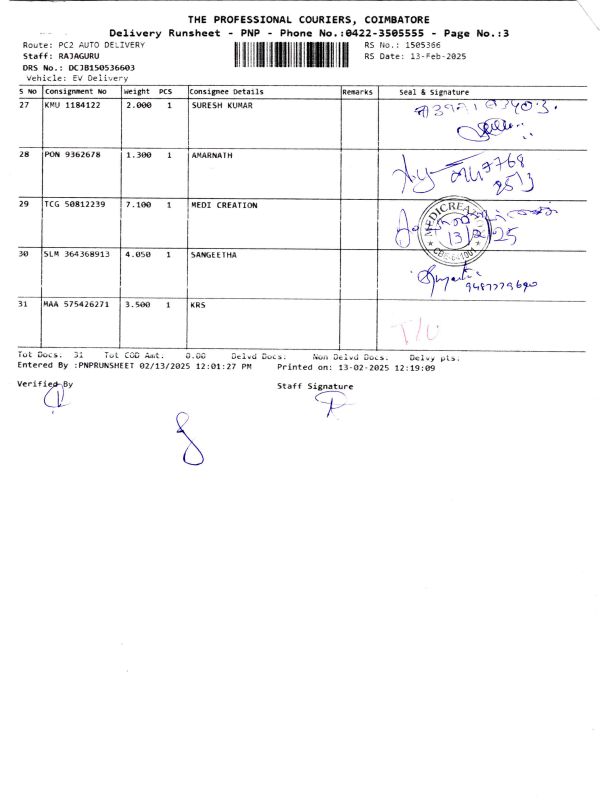 THE PROFESSIONAL COURIERS, COIMBATORE
Delivery Runsheet - PNP - Phone No.:0422-3505555 - Page No.:3
Route: PC2 AUTO DELIVERY RS No.: 1505366
Staff: RAJAGURU RS Date: 13-Feb-2025
DRS No.: DCJB150536603
Vehicle: EV Delivery
S No Consignment No Weight PCS Consignee Details Remarks Seal & Signature
27 KMU 1184122 2.000 1 SURESH KUMAR
28 PON 9362678 1.300 1 AMARNATH
29 TCG 50812239 7.100 1 MEDI CREATION
13/2/25
30 SLM 364368913 4.050 1 SANGEETHA
31 MAA 575426271 3.500 1 KRS
Tot Docs. 31 Tot COD Amt: 0.00 Delvd Docs. Non Delvd Docs. Delvy pts:
Entered By :PNPRUNSHEET 02/13/2025 12:01:27 PM Printed on: 13-02-2025 12:19:09
Verified By Staff Signature